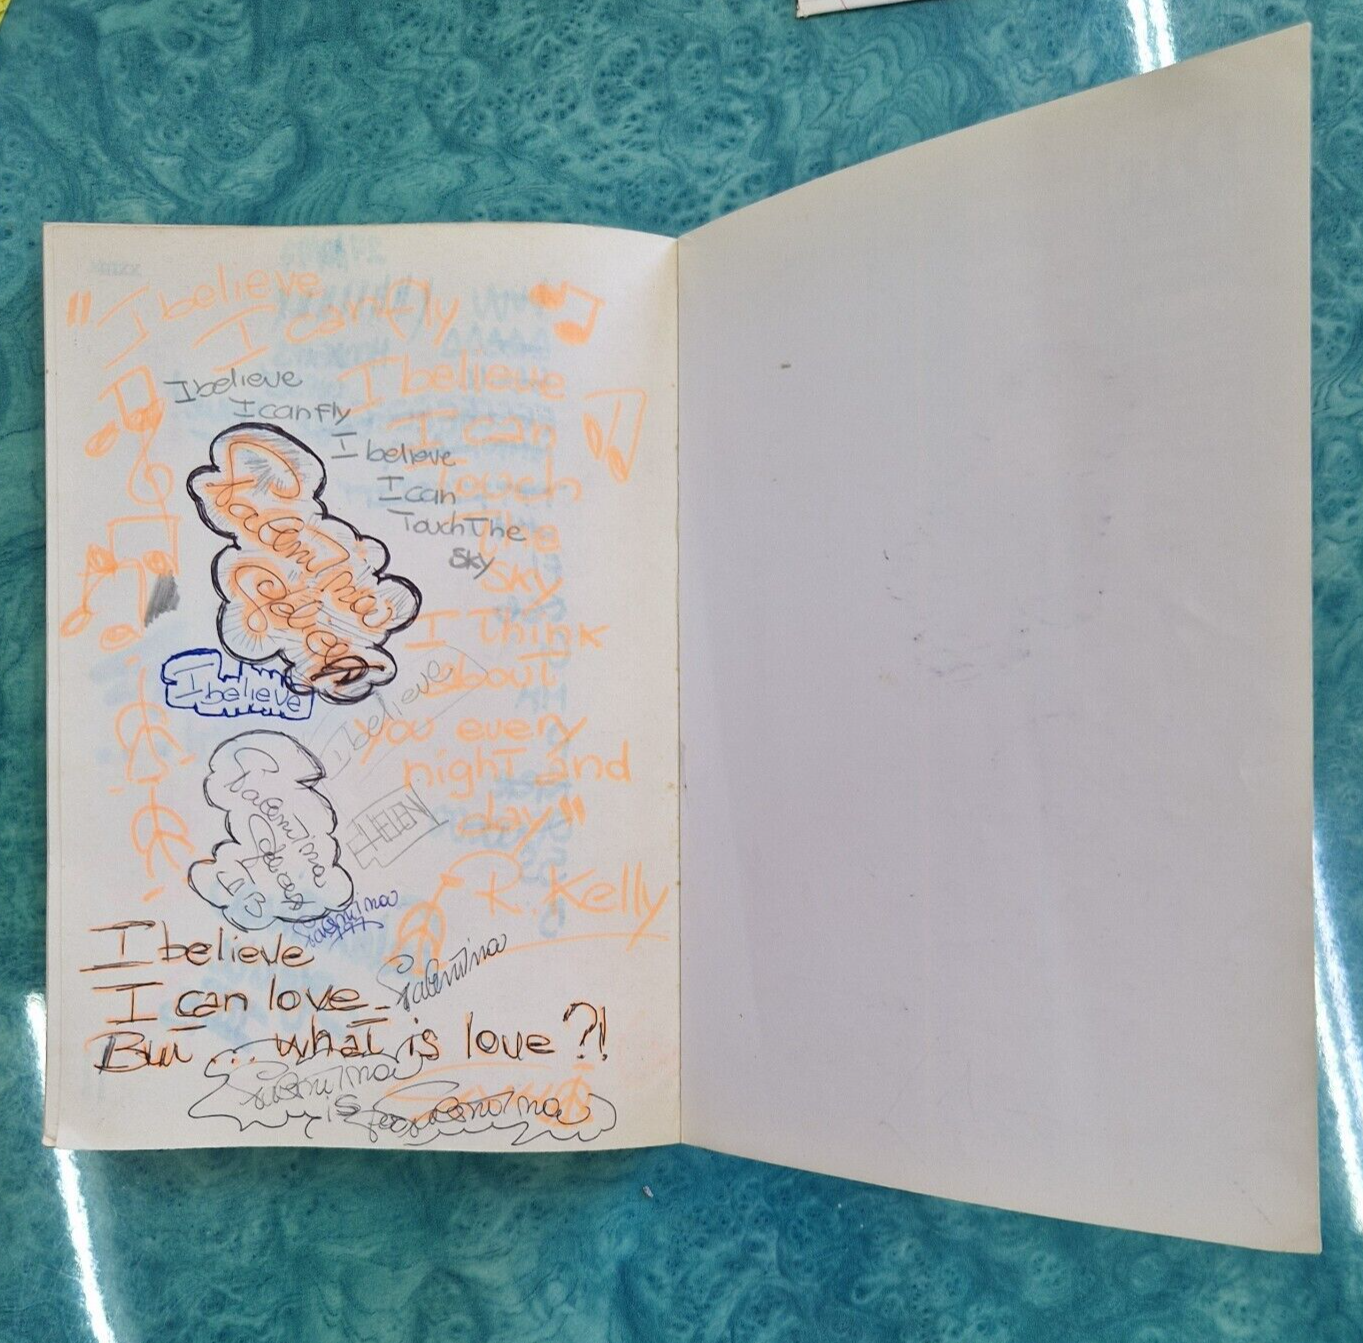 "I believe
I can fly
I believe
I can
Touch
The
Sky
I Think
about
you every
night and
day"
R. Kelly
I believe
I can fly
I believe
I can
Touch The
Sky
Valentina
I believe
I believe
Valentina
HELEN
Valentina
Valentina
I believe
I can love
But ... what is love?!
Valentina
is
Valentina